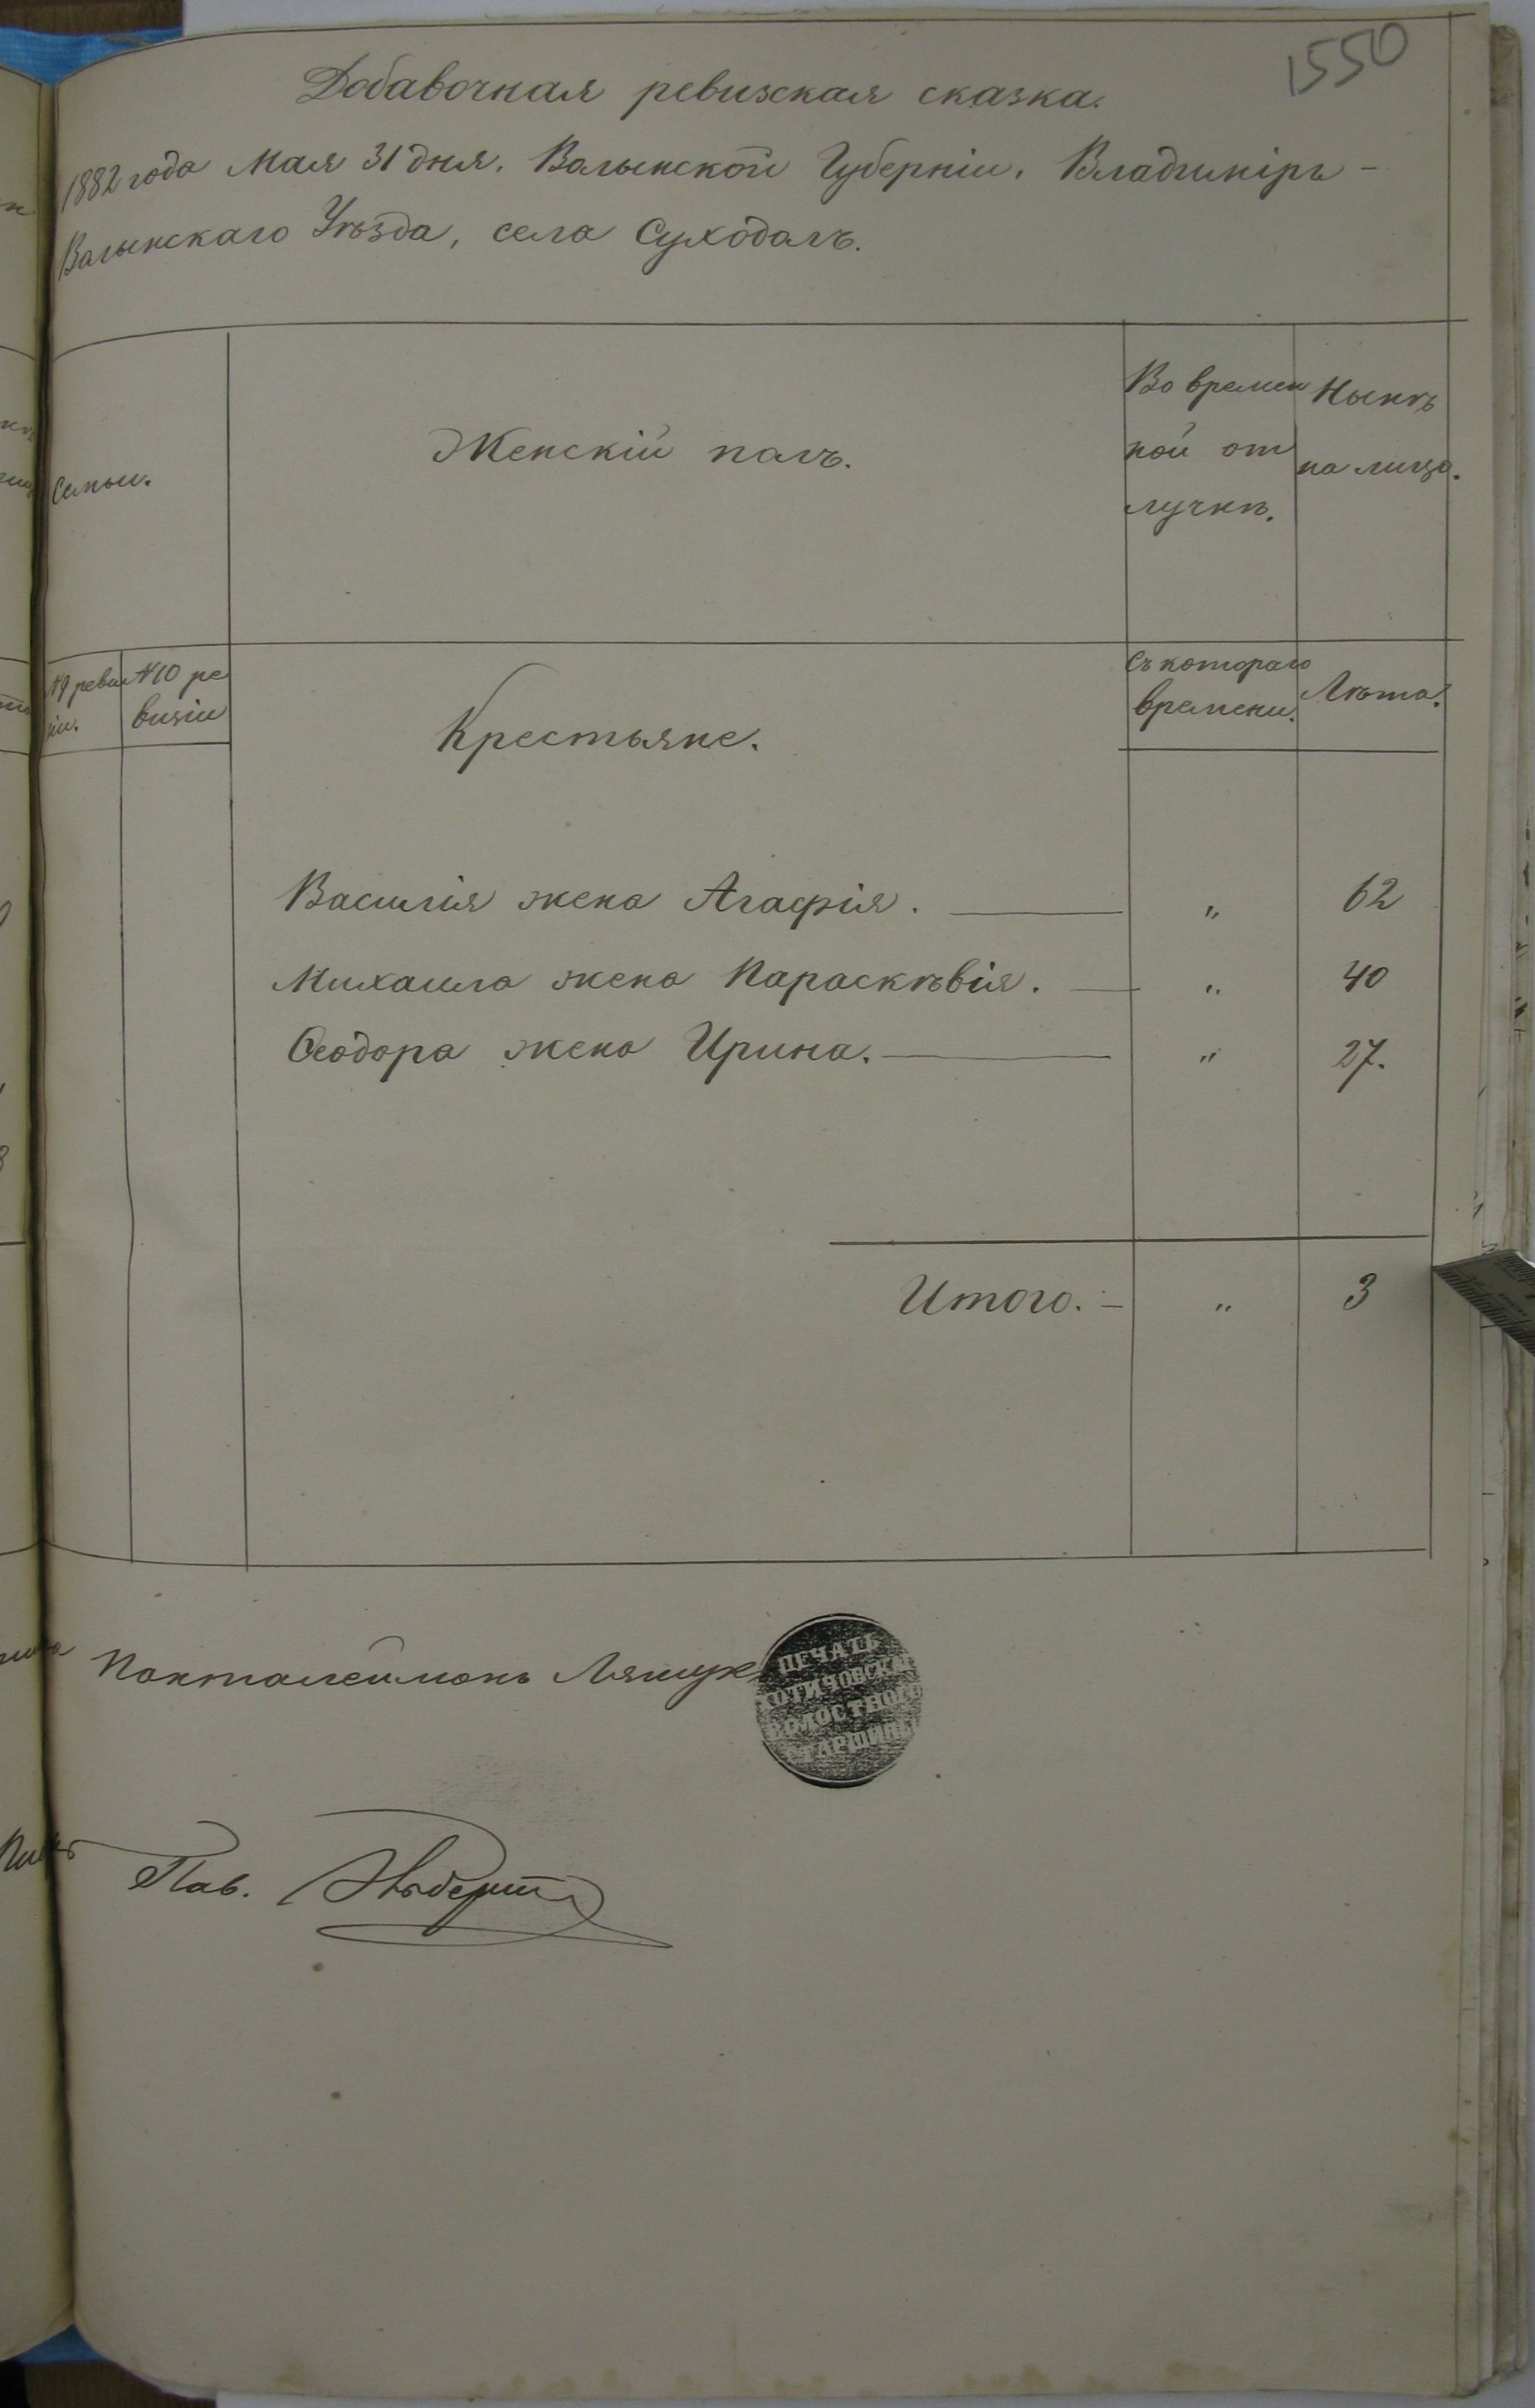 1550
Добавочная ревизская сказка.
1882 года Мая 31 дня. Волынской Губерніи, Владимірь-
Волынскаго Уѣзда, села Суходолъ.
Семьи.
Женскій полъ.
Во времен
ной от
лучкѣ.
Нынѣ
на лицо.
№9 реви
зіи.
№10 ре
визіи
Крестьяне.
Съ котораго
времени.
Лѣта.
Василія жена Агафія. — „ 62
Михаила жена Параскѣвія. — „ 40
Ѳеодора жена Ирина. — „ 27.
Итого. – „ 3
Понталеймонъ Ляшукъ
ПЕЧАТЬ
ХОТЯЧОВСКАГ
ВОЛОСТНОГО
СТАРШИНЫ
Пав.